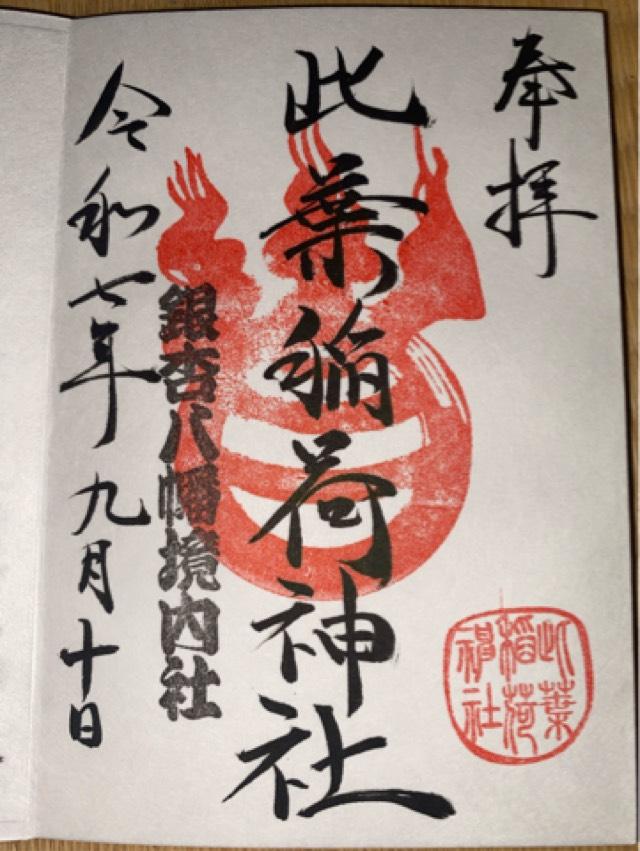 奉拝
此葉稲荷神社
銀杏八幡境内社
令和七年九月十日
此葉
稲荷
神社